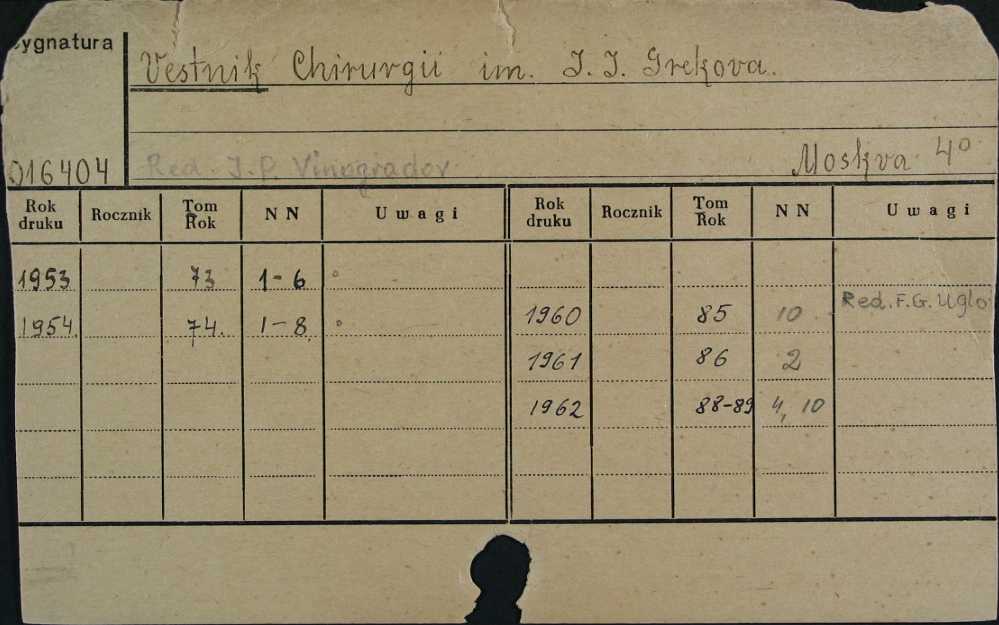 Sygnatura
Vestnik Chirurgii im. J. J. Grekova.
016404
Red. J. P. Vinogradov
Moskva 4°
Rok druku Rocznik Tom Rok NN Uwagi Rok druku Rocznik Tom Rok NN Uwagi
1953 73 1-6 °
1954 74. 1-8 ° 1960 85 10 Red. F. G. Uglo
1961 86 2
1962 88-89 4, 10